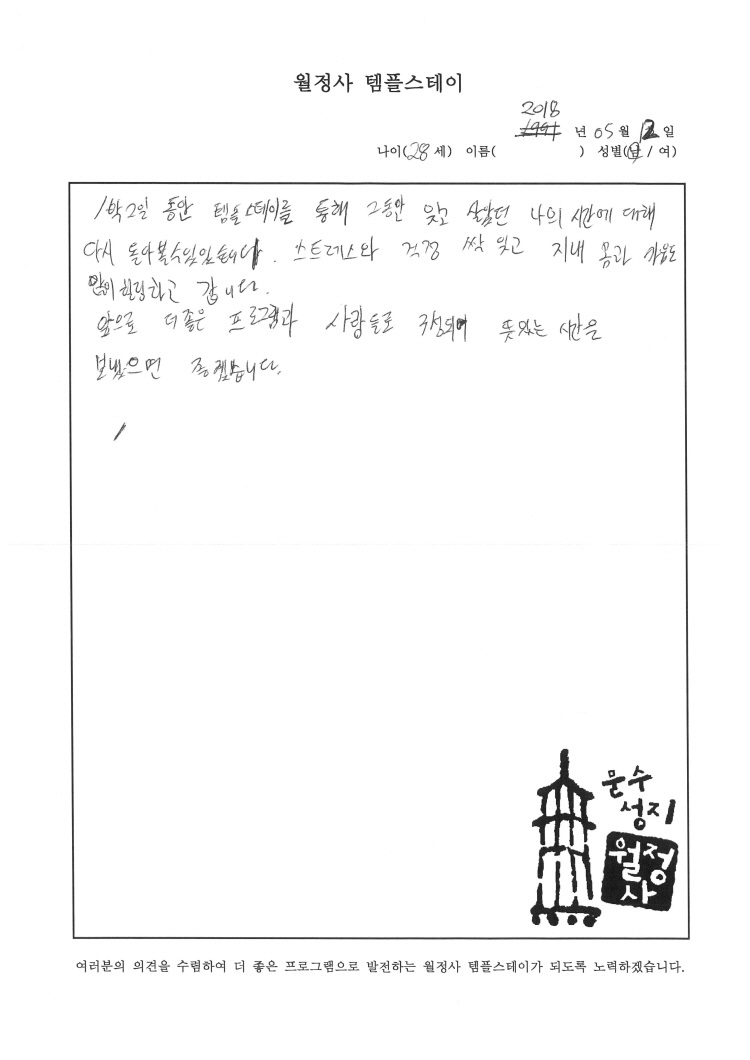 월정사 템플스테이
2018
1991 년 05 월 12 일
나이(28 세) 이름( ) 성별(남 / 여)
1박2일 동안 템플스테이를 통해 그동안 잊고 살았던 나의 시간에 대해
다시 돌아볼수있었습니다. 스트레스와 걱정 싹 잊고 지내 몸과 마음도
많이 힐링하고 갑니다.
앞으로 더 좋은 프로그램과 사람들로 구성되어 뜻있는 시간을
보냈으면 좋겠습니다.
문수
성지
월정
사
여러분의 의견을 수렴하여 더 좋은 프로그램으로 발전하는 월정사 템플스테이가 되도록 노력하겠습니다.